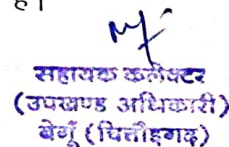 है।
सहायक कलेक्टर
(उपखण्ड अधिकारी)
बेगूँ (चित्तौड़गढ़)